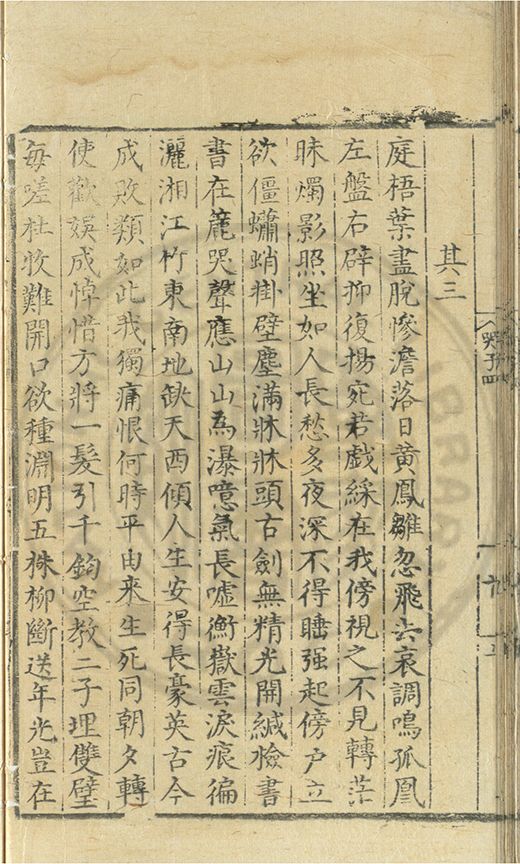 其三
庭梧葉盡脫慘澹落日黃鳳雛忽飛去哀調鳴孤凰
左盤右辟抑復揚宛若戲綵在我傍視之不見轉茫
昧燭影照坐如人長愁多夜深不得睡强起傍户立
欲僵蠨蛸掛壁塵滿牀牀頭古劍無精光開緘撿書
書在簏哭聲應山山爲瀑噫氣長噓衡嶽雲淚痕徧
灑湘江竹東南地缺天西傾人生安得長豪英古今
成敗類如此我獨痛恨何時平由来生死同朝夕轉
使歡娱成悼惜方將一髮引千鈞空教二子埋雙璧
每嗟杜牧難開口欲種淵明五株柳斷送年光豈在